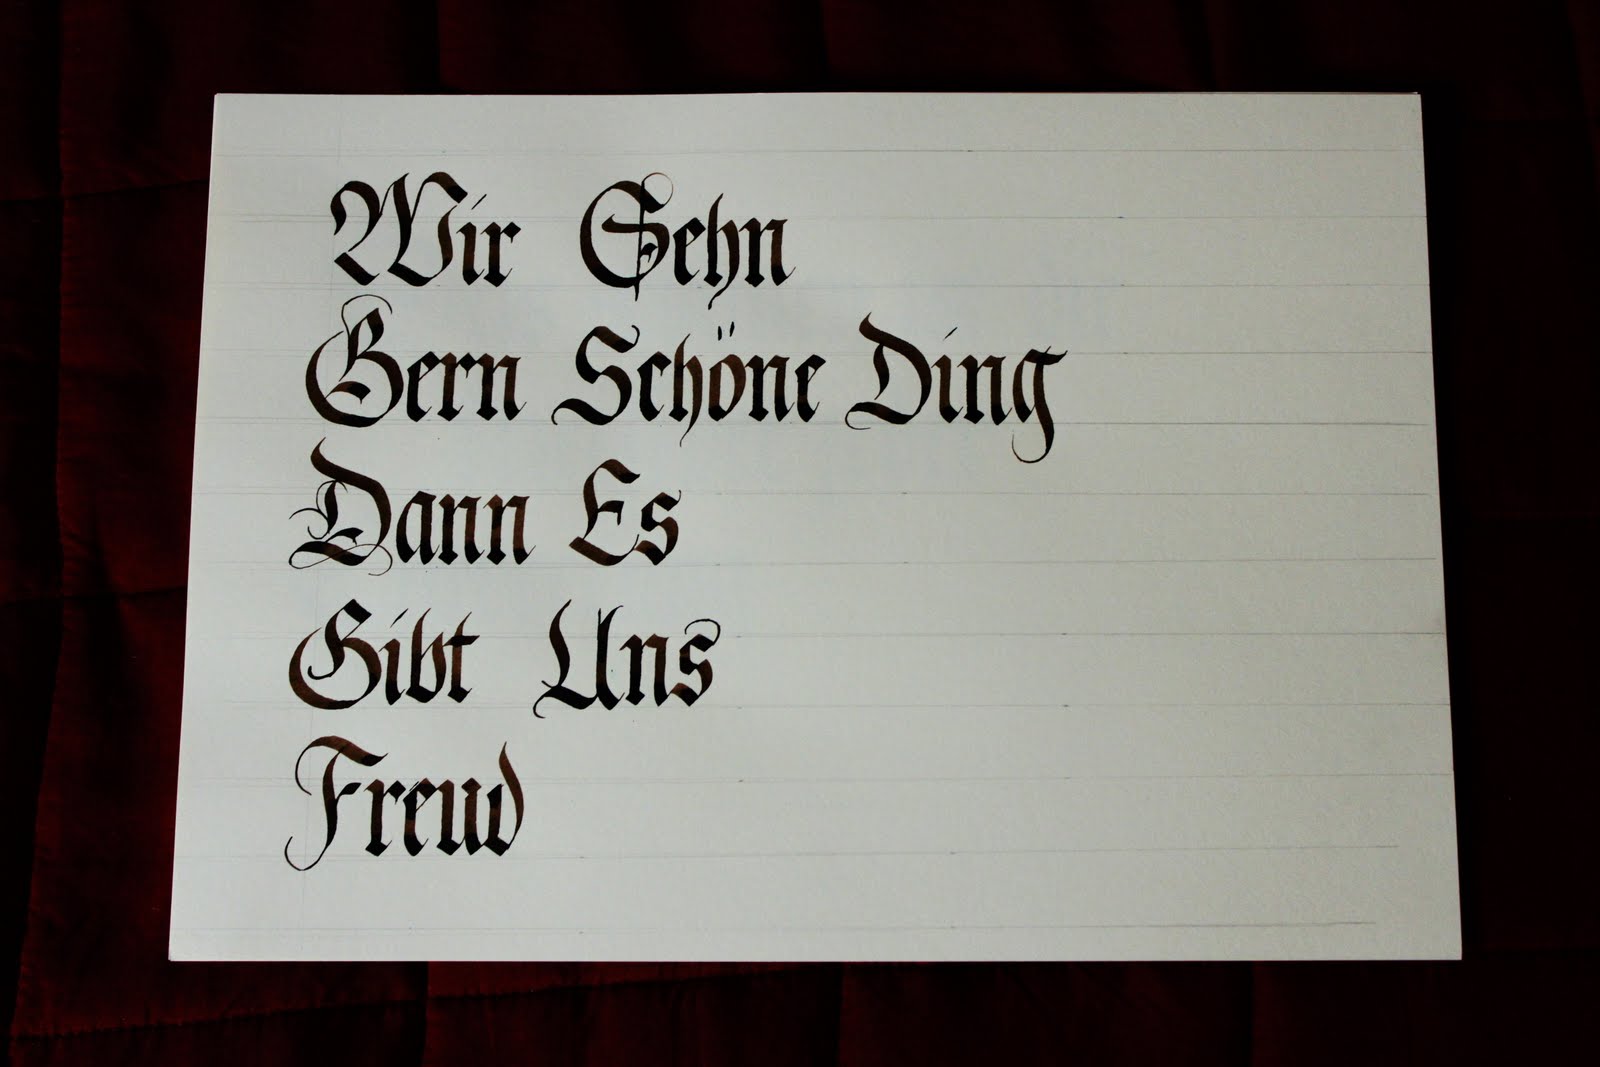 Wir Sehn
Gern Schöne Ding
Dann Es
Gibt Uns
Freud